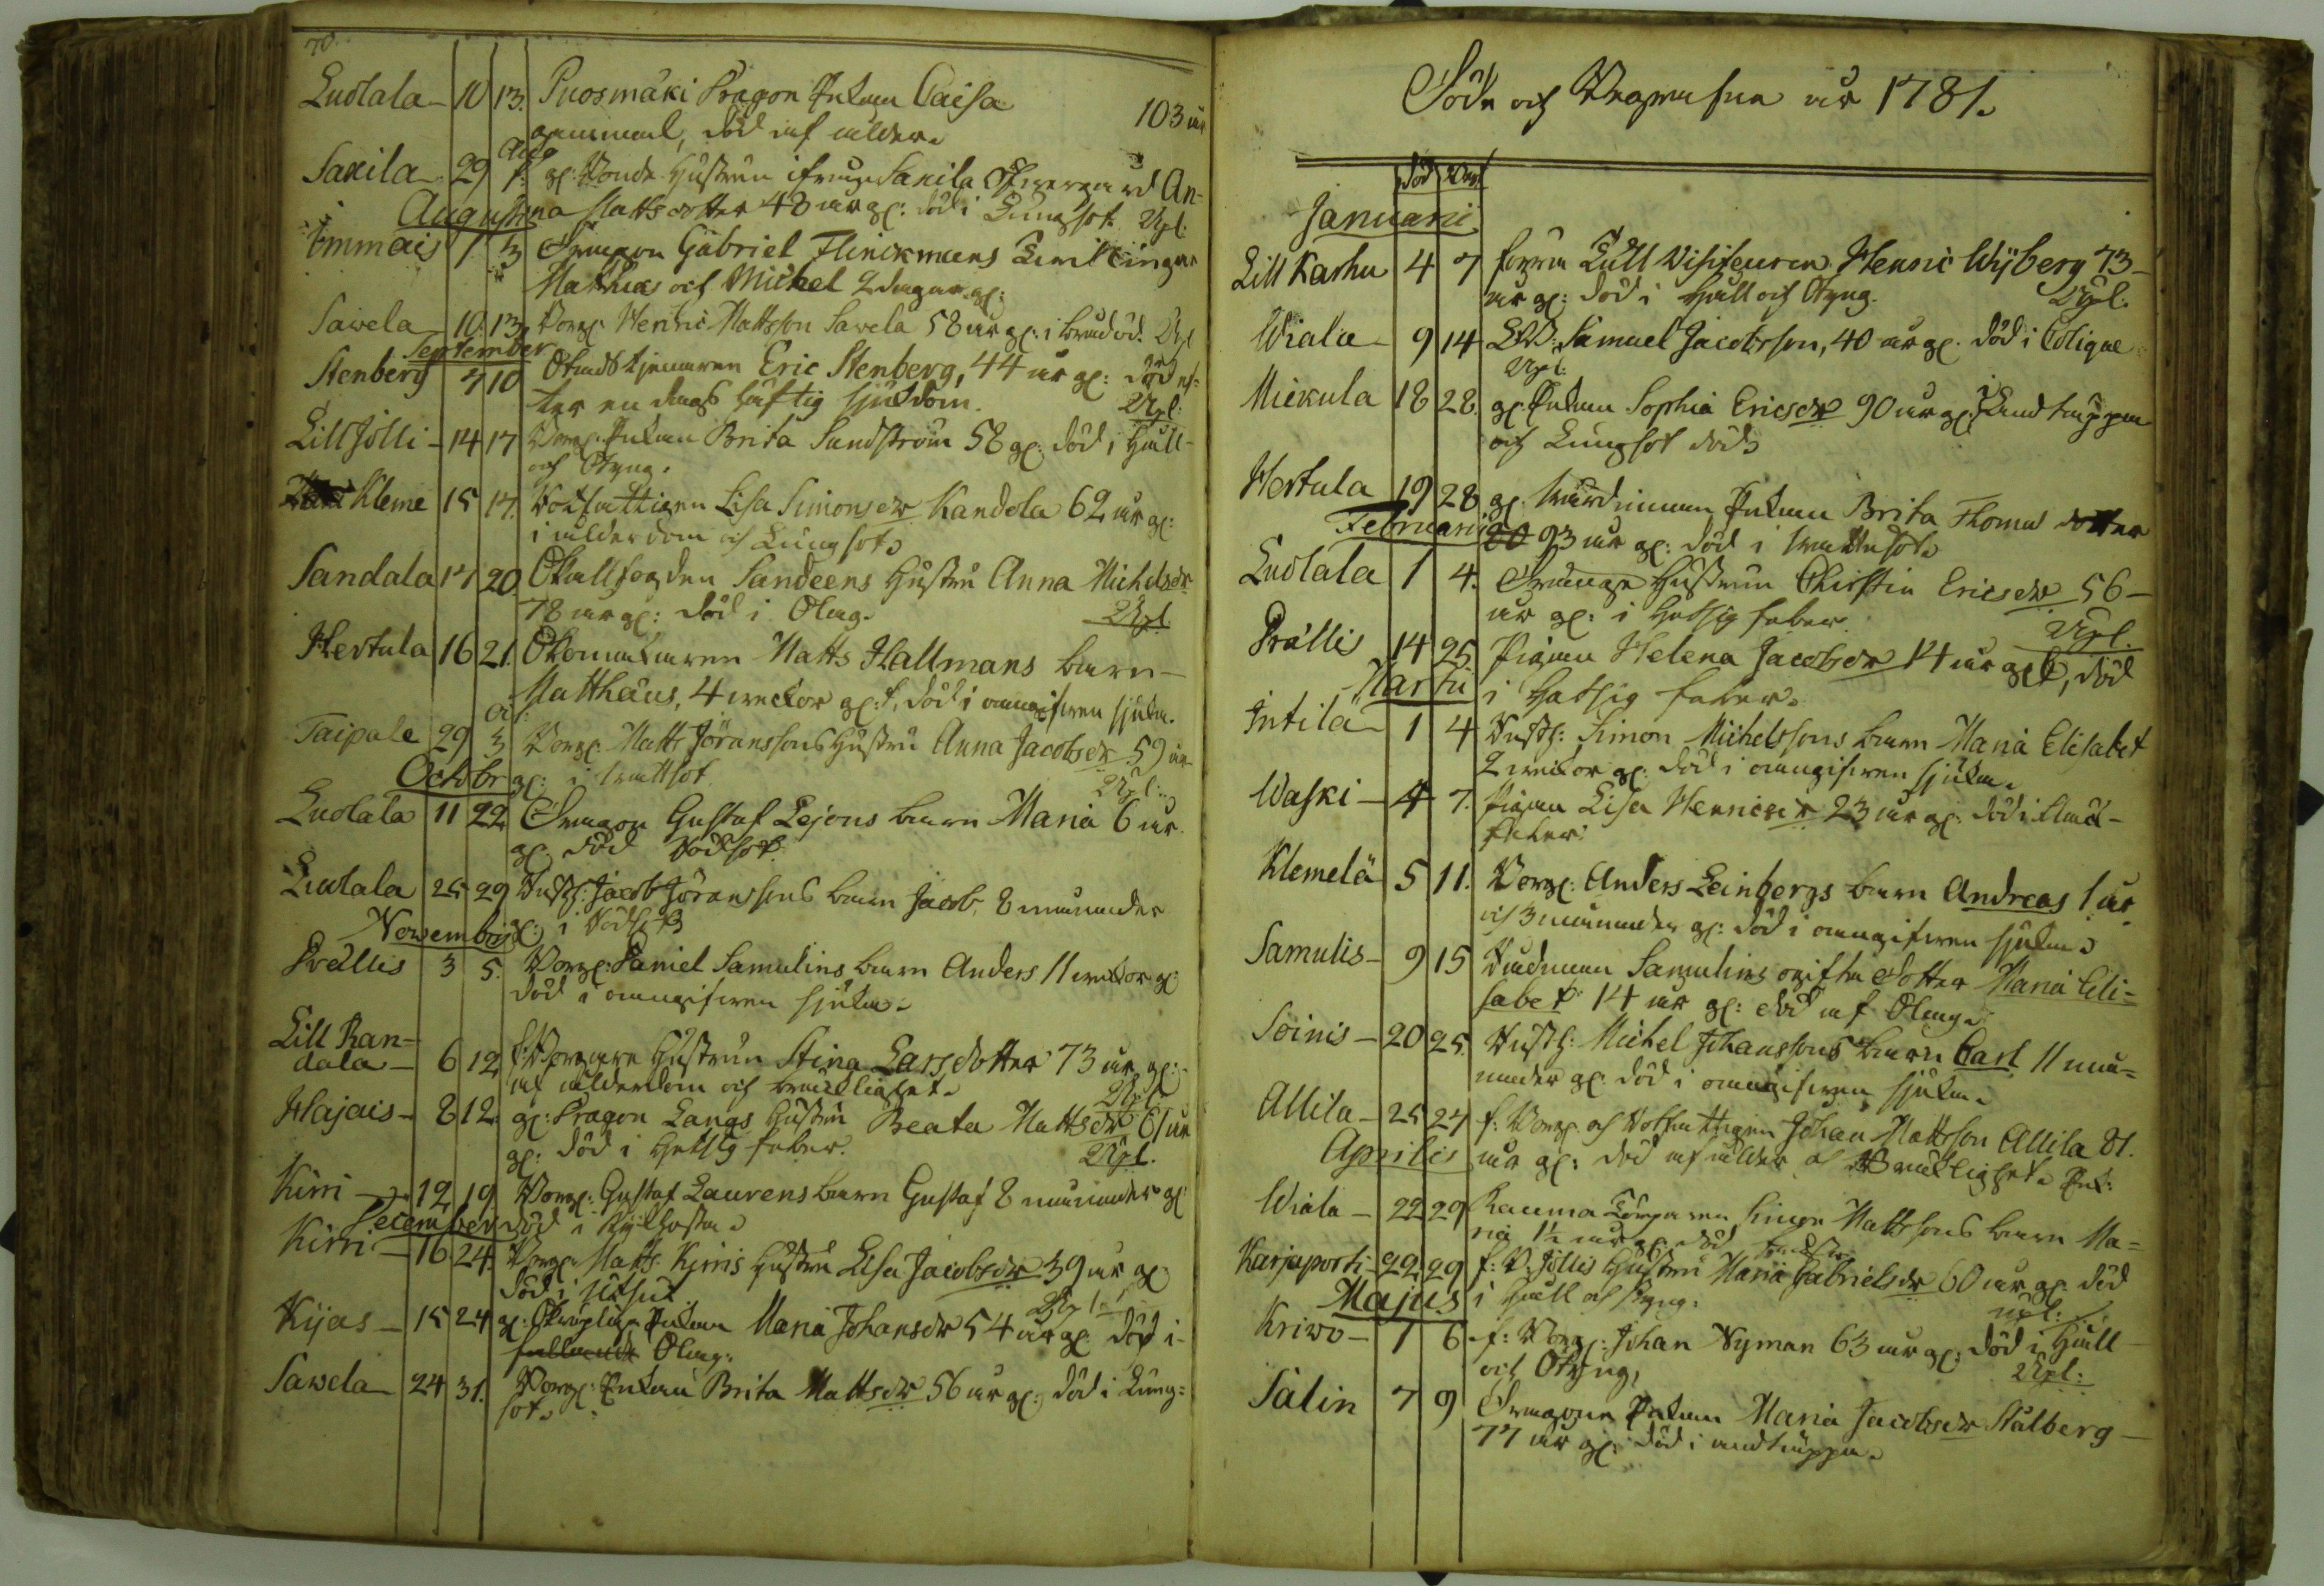 70.
Luolala 10 13. Puosmäki Dragon Enkan Caisa
gammal, död af ålder. 103 år
Sanila 29 Aug. 1. gl: Bonde Hustrun ifrån Sanila An-
na Matts dotter 48 år gl: död i Lungsot. Upl.
Augusti
Immais 1 3 Dragon Gabriel Flinckmans Tvillingar
Matthias och Michel 2 dagar gl:
Sawela 10. 13. Borg. Henric Mattsson Sawela 58 år gl: i brådöd. Upl
September
Stenberg 7 10 Stadstjenaren Eric Stenberg, 44 år gl: död ef-
ter en dags häftig sjukdom. Upl:
Lill Jolli 14 17 Borg: Enkan Brita Sundström 58 gl: död i Håll-
och Styng.
Kleme 15 17. Rotfattigen Lisa Simonsdr Kandola 62 år gl:
i ålderdom och Lungsot.
Sandala 17 20. Skallfogden Sandeens Hustru Anna Michelsdr
78 år gl: död i Slag. Upl
Hertula 16 21. Skomakaren Matts Hallmans barn
Matthäus, 4 weckor gl:, död i oangifwen sjukd.
Taipale 29 3 Borg: Matts Jöranssons Hustru Anna Jacobsdr 59 år
gl: i brattsot. Upl:
Octobr
Luolala 11 22. Dragon Gustaf Lejons barn Maria 6 år
gl: död Rödsot.
Luolala 25 29 Inhs: Jacob Jöranssons barn Jacob, 8 månader
gl: i Rödsot
November
Prällis 3 5. Borg: Daniel Samulins barn Anders 11 weckor gl:
död i oangifwen sjukd.
Lill Ran-
dala 6 12 f: Borgare Hustrun Stina Larsdotter 73 år gl:
af ålderdom och bräcklighet. Upl
Hajais 8 12. gl: Dragon Langs Hustru Beata Mattsdr 61 år
gl: död i Hetsig feber. Upl.
Kirri 12 19 Borg: Gustaf Laurens barn Gustaf 8 månader gl:
död i Kikhosta.
December
Kirri 16 24. Borg: Matts Kirris Hustru Lisa Jacobsdr 39 år gl:
död i Upl.
Kijas 15 24 gl: Enkan Maria Johansdr 54 år gl: död i
Slag.
Sawela 24 31. Borg: Enkan Brita Mattsdr 56 år gl: död i Lung-
sot.
Döde och Begrafne år 1781.
död Begr
Januarii
Lill Karhu 4 7 förra Tull Visiteuren Henric Wijberg 73
år gl: död i Håll och Styng. Upl:
Wiala 9 14 Samuel Jacobsson, 40 år gl. död i Colique
Upl:
Mickula 18 28. gl. Enkan Sophia Ericsdr 90 år gl: i Andtäppa
och Lungsot död
Hertula 19 28 gl. Enkan Brita Thomas dotter
93 år gl: död i brattsot.
Februarii
Luolala 1 4. Hustrun Christin Ericsdr 56
år gl: i Hetsig feber Upl.
Prällis 14 25. Pigan Helena Jacobsdr 14 år gl:, död
i Hetsig feber.
Martii
Intilä 1 4 Inhs: Simon Michelssons barn Maria Elisabet
2 weckor gl: död i oangifwen sjukd.
Waski 4 7. Pigan Lisa Henricsdr 23 år gl: död i fläck-
feber.
Klemelä 5 11. Borg: Anders Leinbergs barn Andreas 1 år
och 3 månader gl: död i oangifwen sjukd.
Samulis 9 15 Rådman Samulins ogifta dotter Maria Eli-
sabet. 14 år gl: död af Slag.
Soinis 20 25. Inhs: Michel Johanssons barn Carl 11 må-
nader gl. död i oangifwen sjukd.
Allila 25 27 f: Borg: och Rotfattigen Johan Mattsson Allila 81.
år gl: död af ålder och Bräcklighet.
Aprilis
Wiala 22 29 Rauma Simon Mattssons barn Ma-
ria 1½ år gl. död
Karjaporti 22. 29 f: B: Jöllis Hustru Maria Gabrielsdr 60 år gl: död
i Håll och Styng. upl:
Majus
Kriwo 1 6 f: Borg: Johan Nyman 63 år gl: död i Håll
och Styng, Upl:
Salin 7 9 Dragons Enkan Maria Jacobsdr Stålberg
77 år gl: död i andtäppa.